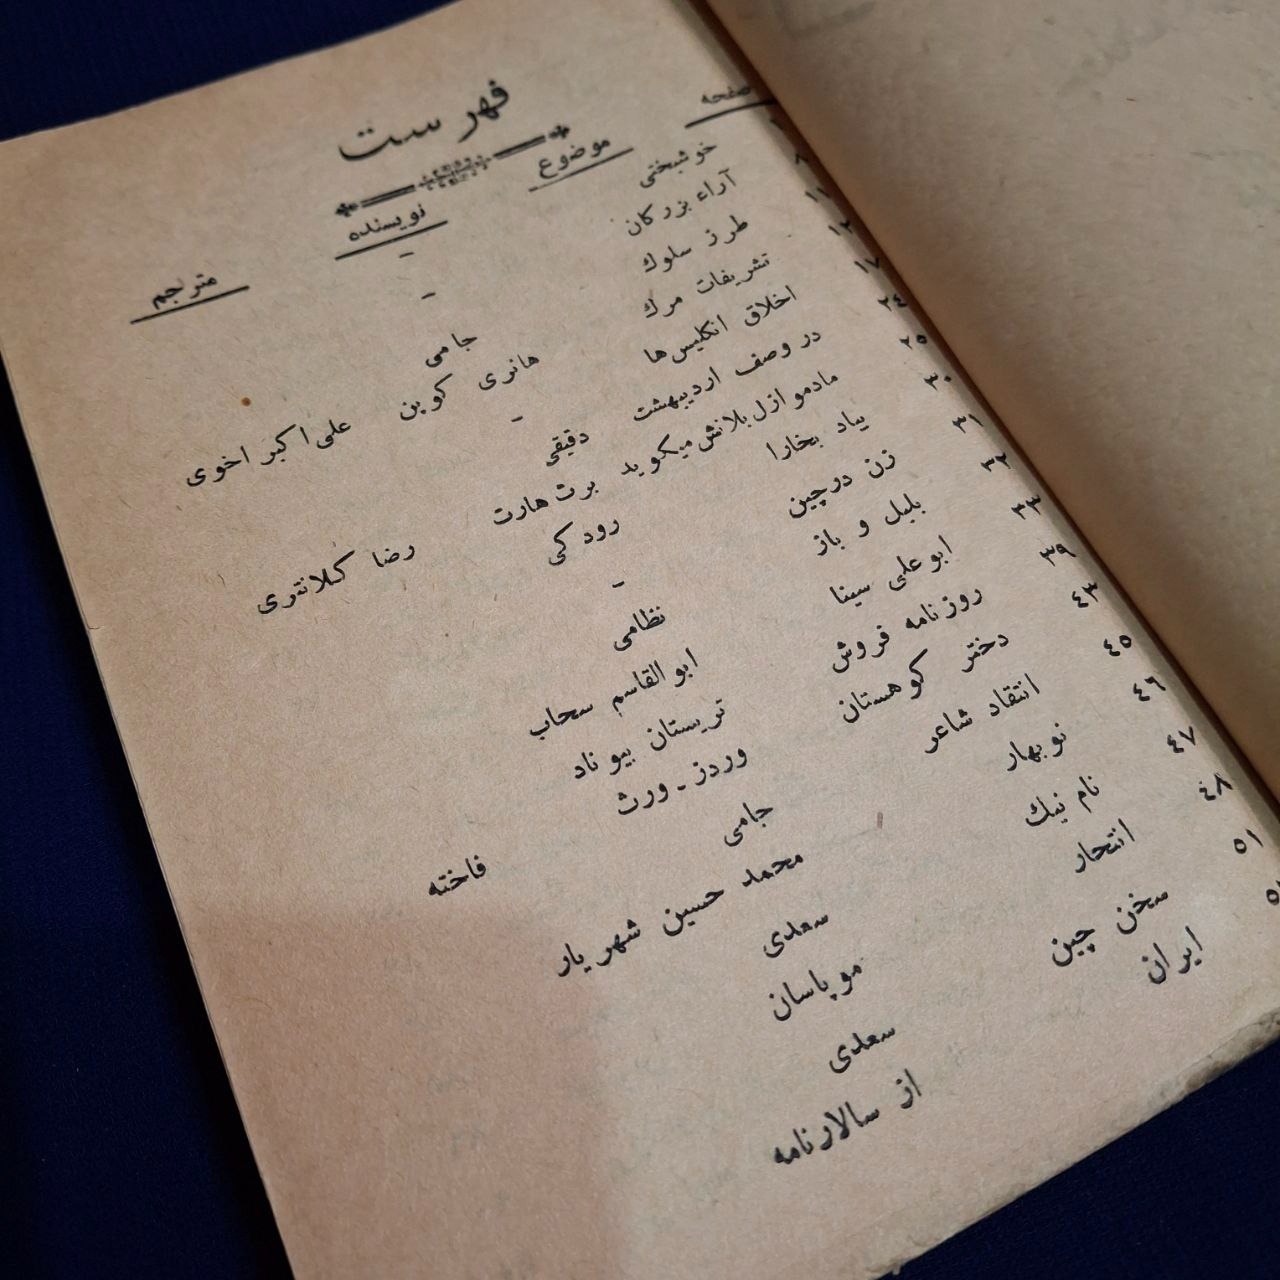 فهرست
صفحه موضوع نویسنده مترجم
خوشبختی -
۸ آراء بزرکان -
۱۱ طرز سلوك جامی
۱۲ تشریفات مرك هانری کوین علی اکبر اخوی
۱۷ اخلاق انکلیس‌ها -
۲٤ در وصف اردیبهشت دقیقی
۲٥ مادموازل بلانش میکوید برث هارت رضا کلانتری
۳۰ بیاد بخارا رودکی
۳۱ زن درچین -
۳۲ بلبل و باز نظامی
۳۳ ابوعلی سینا ابوالقاسم سحاب
۳۹ روزنامه فروش تریستان بیوناد
٤۳ دختر کوهستان وردز-ورث فاخته
٤٥ انتقاد شاعر جامی
٤٦ نوبهار محمد حسین شهریار
٤۷ نام نیك سعدی
٤۸ انتحار موپاسان
٥۱ سخن چین سعدی
ایران از سالارنامه